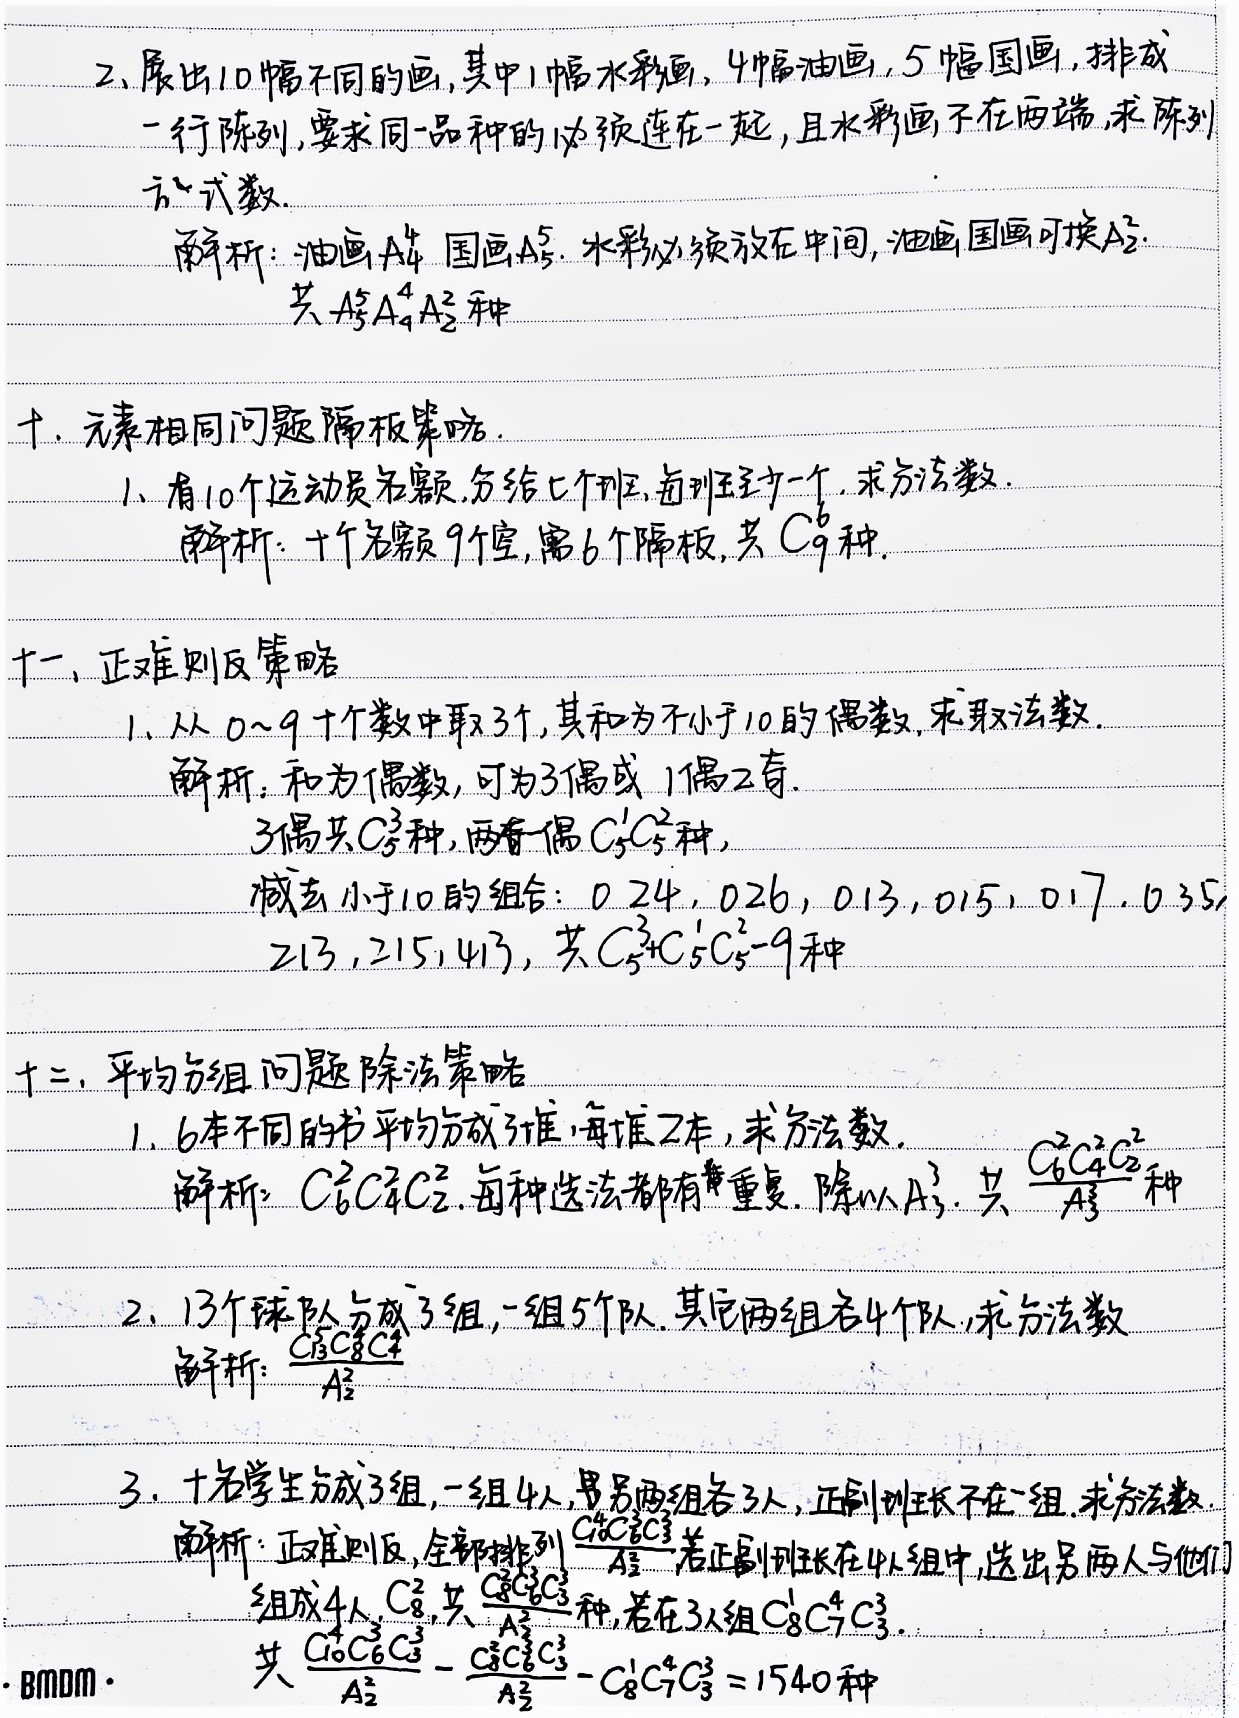 2、展出10幅不同的画,其中1幅水彩画,4幅油画,5幅国画,排成
一行陈列,要求同一品种的必须连在一起,且水彩画不在两端,求陈列
方式数.
解析:油画A₄⁴ 国画A₅⁵. 水彩必须放在中间,油画国画可换A₂².
共A₅⁵A₄⁴A₂²种
十、元素相同问题隔板策略.
1、有10个运动员名额,分给七个班,每班至少一个,求分法数.
解析:十个名额9个空,需6个隔板,共C₉⁶种.
十一、正难则反策略
1、从0~9十个数中取3个,其和为不小于10的偶数,求取法数.
解析:和为偶数,可为3偶或1偶2奇.
3偶共C₅³种,两奇一偶C₅¹C₅²种,
减去小于10的组合:024,026,013,015,017.035,
213,215,413,共C₅³+C₅¹C₅²-9种
十二、平均分组问题除法策略
1、6本不同的书平均分成3堆,每堆2本,求分法数.
解析:C₆²C₄²C₂².每种选法都有重复.除以A₃³.共 C₆²C₄²C₂²/A₃³ 种
2、13个球队分成3组,一组5个队.其它两组各4个队,求分法数
解析:C₁₃⁵C₈⁴C₄⁴/A₂²
3、十名学生分成3组,一组4人,另两组各3人,正副班长不在一组.求分法数.
解析:正难则反,全部排列 C₁₀⁴C₆³C₃³/A₂² 若正副班长在4人组中,选出另两人与他们
组成4人,C₈²,共 C₈²C₆³C₃³/A₂² 种,若在3人组C₈¹C₇⁴C₃³.
共 C₁₀⁴C₆³C₃³/A₂² - C₈²C₆³C₃³/A₂² - C₈¹C₇⁴C₃³ = 1540种
·BMDM·